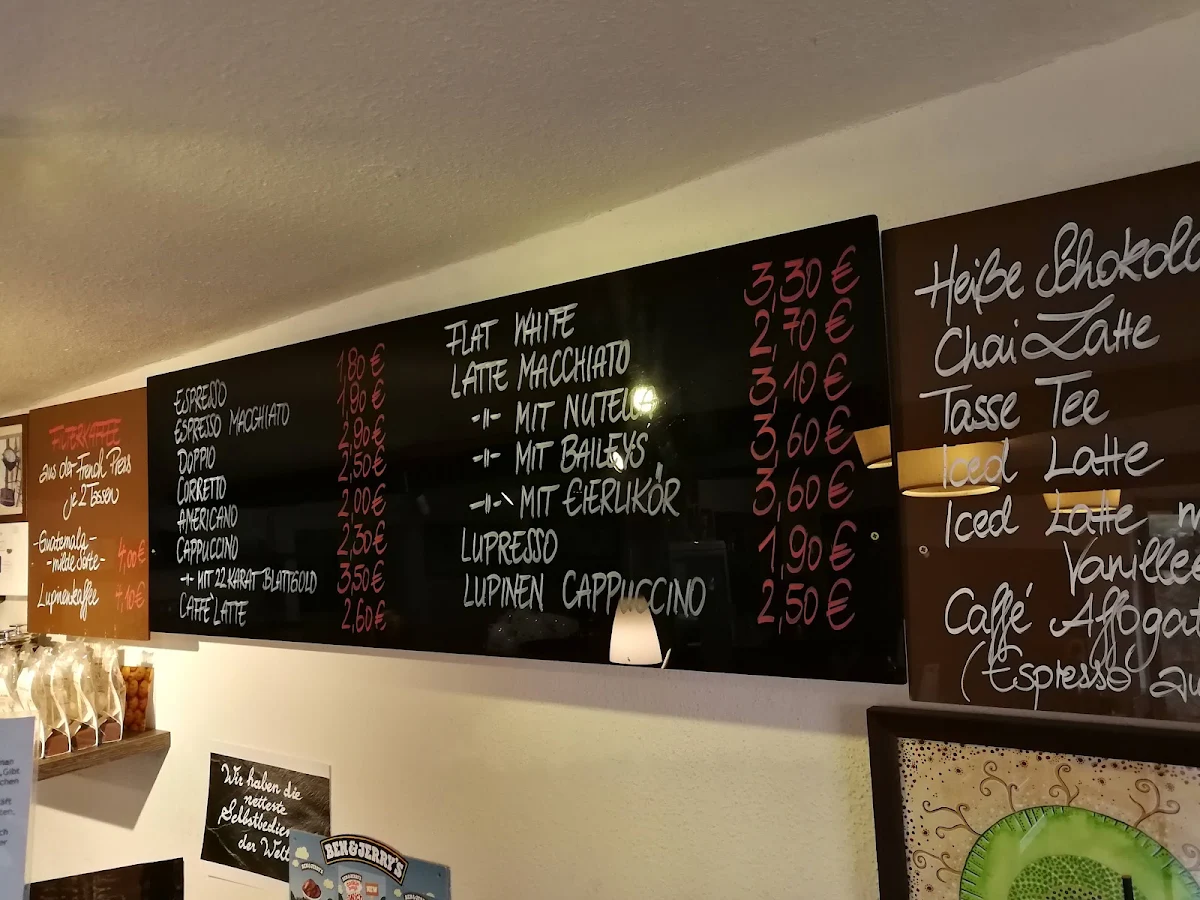 FILTERKAFFEE
aus der French Press
je 2 Tassen
-Guatemala-
-milde Sorte- 4,00€
Lupinenkaffee 4,10€
ESPRESSO 1,80 €
ESPRESSO MACCHIATO 1,90 €
DOPPIO 2,90€
CORRETTO 2,50€
AMERICANO 2,00€
CAPPUCCINO 2,30€
-||- MIT 22 KARAT BLATTGOLD 3,50€
CAFFÈ LATTE 2,60€
FLAT WHITE 3,30 €
LATTE MACCHIATO 2,70 €
-||- MIT NUTELLA 3,10 €
-||- MIT BAILEYS 3,60 €
-||- MIT EIERLIKÖR 3,60 €
LUPRESSO 1,90€
LUPINEN CAPPUCCINO 2,50€
Heiße Schokola
Chai Latte
Tasse Tee
Iced Latte
Iced Latte m
Vanillee
Caffé Affogat
(Espresso au
Wir haben die
netteste
Selbstbedien
der Welt
BEN & JERRY'S
NEW